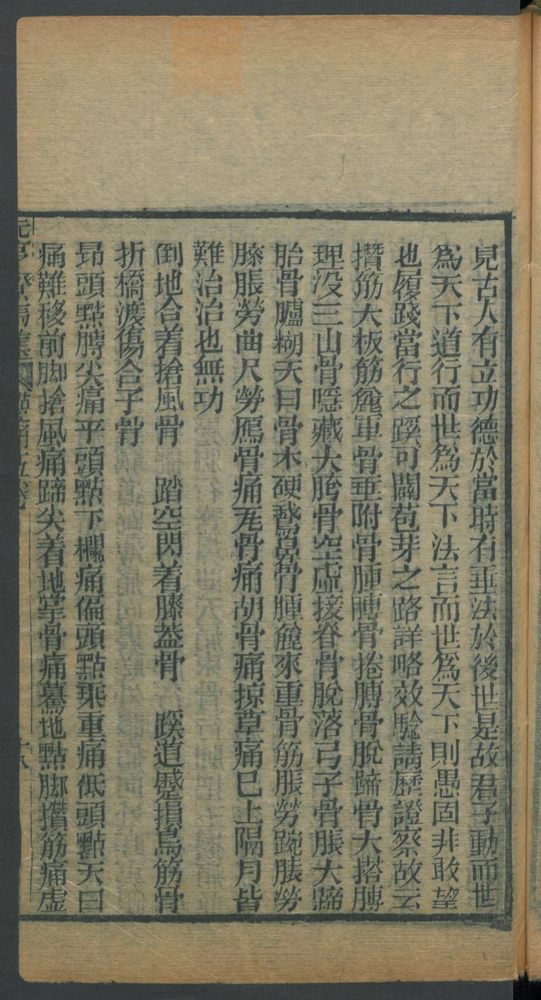 見古人有立功德於當時有垂法於後世是故君子動而世
爲天下道行而世爲天下法言而世爲天下則愚固非敢望
也履踐當行之蹊可闢苞芽之路詳略效驗請歷證察故云
攢筋大板筋龐重骨垂附骨腫膊骨捲膊骨脫蹄骨大搭膊
埋没三山骨噁藏大胯骨空虛接脊骨脫落弓子骨脹大蹄
胎骨臚糊天臼骨木硬骨腫龐來重骨筋脹勞踠脹勞
膝脹勞曲尺勞鴈骨痛尾骨痛胡骨痛掠草痛已上隔月皆
難治治也無功
倒地合着搶風骨 踏空閃着膝蓋骨 蹊道蹙損烏筋骨
折橋渡傷合子骨
昂頭點膊尖痛平頭點下欄痛偏頭點乘重痛低頭點天臼
痛難移前脚搶風痛蹄尖着地掌骨痛驀地點脚攢筋痛虛